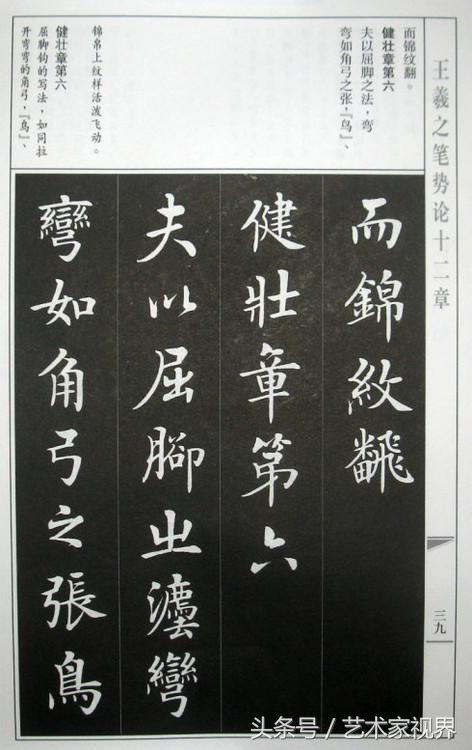 王羲之笔势论十二章
而锦纹翻。
健壮章第六
夫以屈脚之法，弯
弯如角弓之张，『鸟』、
锦帛上纹样活泼飞动。
健壮章第六
屈脚钩的写法，如同拉
开弯弯的角弓，『鸟』、
而錦紋飜
健壯章第六
夫以屈腳之灋彎
彎如角弓之張鳥
三九
头条号／艺术家视界